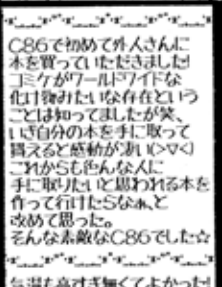 C86で初めて外人さんに
本を買っていただきました!
コミケがワールドワイドな
化け物みたいな存在という
ことは知ってましたが笑、
いざ自分の本を手に取って
貰えると感動が凄い(>▽<)
これからも色んな人に
手に取りたいと思われる本を
作って行けたらなぁ、と
改めて思った。
そんな素敵なC86でした☆
気温も高すぎ無くてよかった!